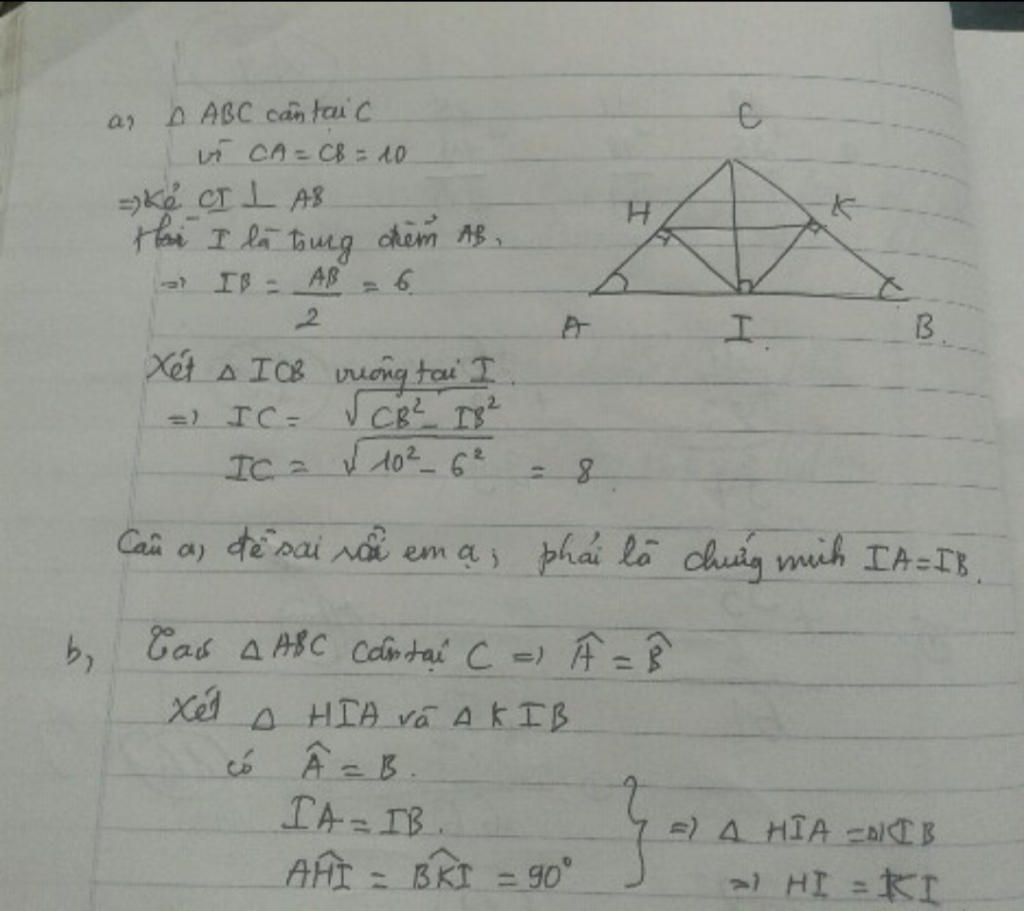 a, Δ ABC cân tại C
vì CA = CB = 10
=> Kẻ CI ⊥ AB
I là trung điểm AB,
=> IB = AB/2 = 6
C
H
K
A
I
B
Xét Δ ICB vuông tại I
=> IC = √(CB² - IB²)
IC = √(10² - 6²) = 8
Câu a, đề sai rồi em ạ, phải là chứng minh IA = IB.
b, Δ ABC cân tại C => Â = B̂
Xét Δ HIA và Δ KIB
có Â = B.
IA = IB.
AĤI = BK̂I = 90°
} => Δ HIA = ΔKIB
=> HI = KI